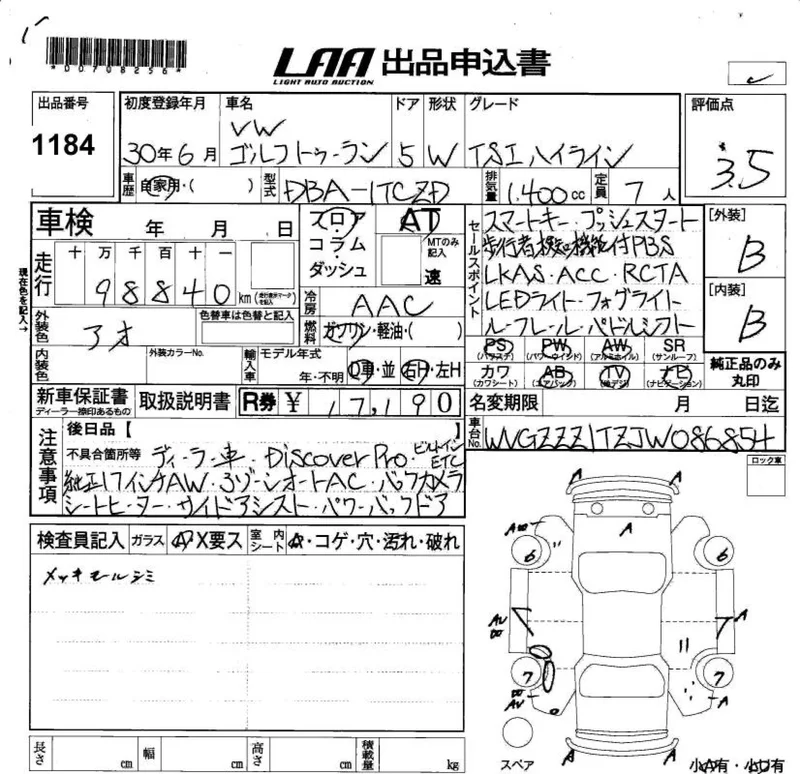 *D0708256*
LAA 出品申込書
LIGHT AUTO AUCTION
出品番号
1184
初度登録年月 車名 ドア 形状 グレード
30年6月 VW ゴルフトゥーラン 5 W TSIハイライン
評価点
3.5
車歴 自家用・( ) 型式 DBA-1TCZD 排気量 1,400cc 定員 7人
車検 年 月 日
フロア
コラム・
ダッシュ
AT
MTのみ記入
速
セールスポイント
スマートキー・プッシュスタート
歩行者検知機能付PBS
LKAS・ACC・RCTA
LEDライト・フォグライト
ルーフレール・パドルシフト
[外装]
B
[内装]
B
現在色を記入→
走行 十 万 千 百 十 一
98840 km (走行表示マークを記入)
冷房 AAC
外装色 アオ 色替車は色替と記入
燃料 ガソリン・軽油・( )
内装色 外装カラーNo. 輸入車 モデル年式 年・不明 D車・並 右H・左H
PS (パワステ) PW (パワーウインド) AW (アルミホイル) SR (サンルーフ)
カワ (カワシート) AB (エアバック) TV (地デジ) ナビ (ナビゲーション)
純正品のみ丸印
新車保証書 ディーラー捺印あるもの 取扱説明書 R券 ¥ 17,190
名変期限 月 日迄
車台No. WVGZZZ1TZJW086854
注意事項
後日品【 】
不具合箇所等 ディーラー車・Discover Pro・ビルトインETC
純正17インチAW・3ゾーンオートAC・バックカメラ
シートヒーター・サイドアシスト・パワーバックドア
ロック車
検査員記入 ガラス A X要ス 室内シート A・コゲ・穴・汚れ・破れ
メッキモールシミ
A A
A
A
6 6
A
7 7
A
A A
スペア
小A有・小U有
長さ cm 幅 cm 高さ cm 積載量 kg